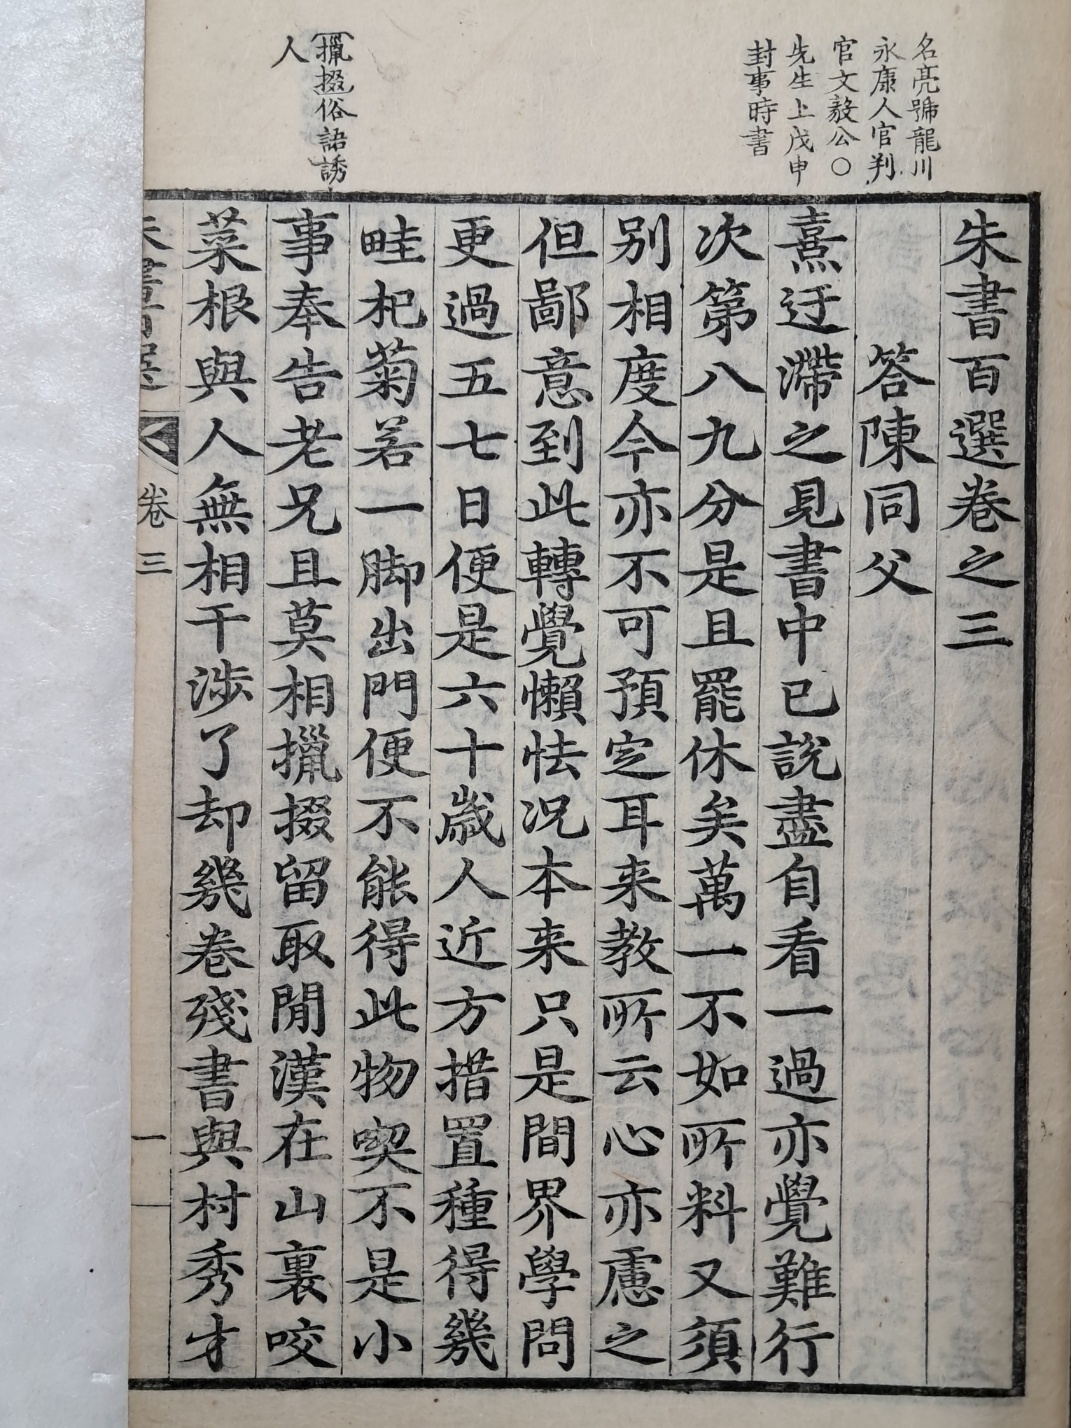 名亮號龍川
永康人官判
官文毅公〇
先生上戊申
封事時書
攦掇俗語誘
人
朱書百選卷之三
答陳同父
熹迂滯之見書中已說盡自看一過亦覺難行
次第八九分是且罷休矣萬一不如所料又須
別相度今亦不可預定耳来教所云心亦慮之
但鄙意到此轉覺懶怯况本来只是間界學問
更過五七日便是六十歲人近方措置種得幾
畦杞菊若一脚出門便不能得此物喫不是小
事奉告老兄且莫相攦掇留取閒漢在山裏咬
菜根與人無相干涉了却幾卷殘書與村秀才
朱書百選
卷三
一